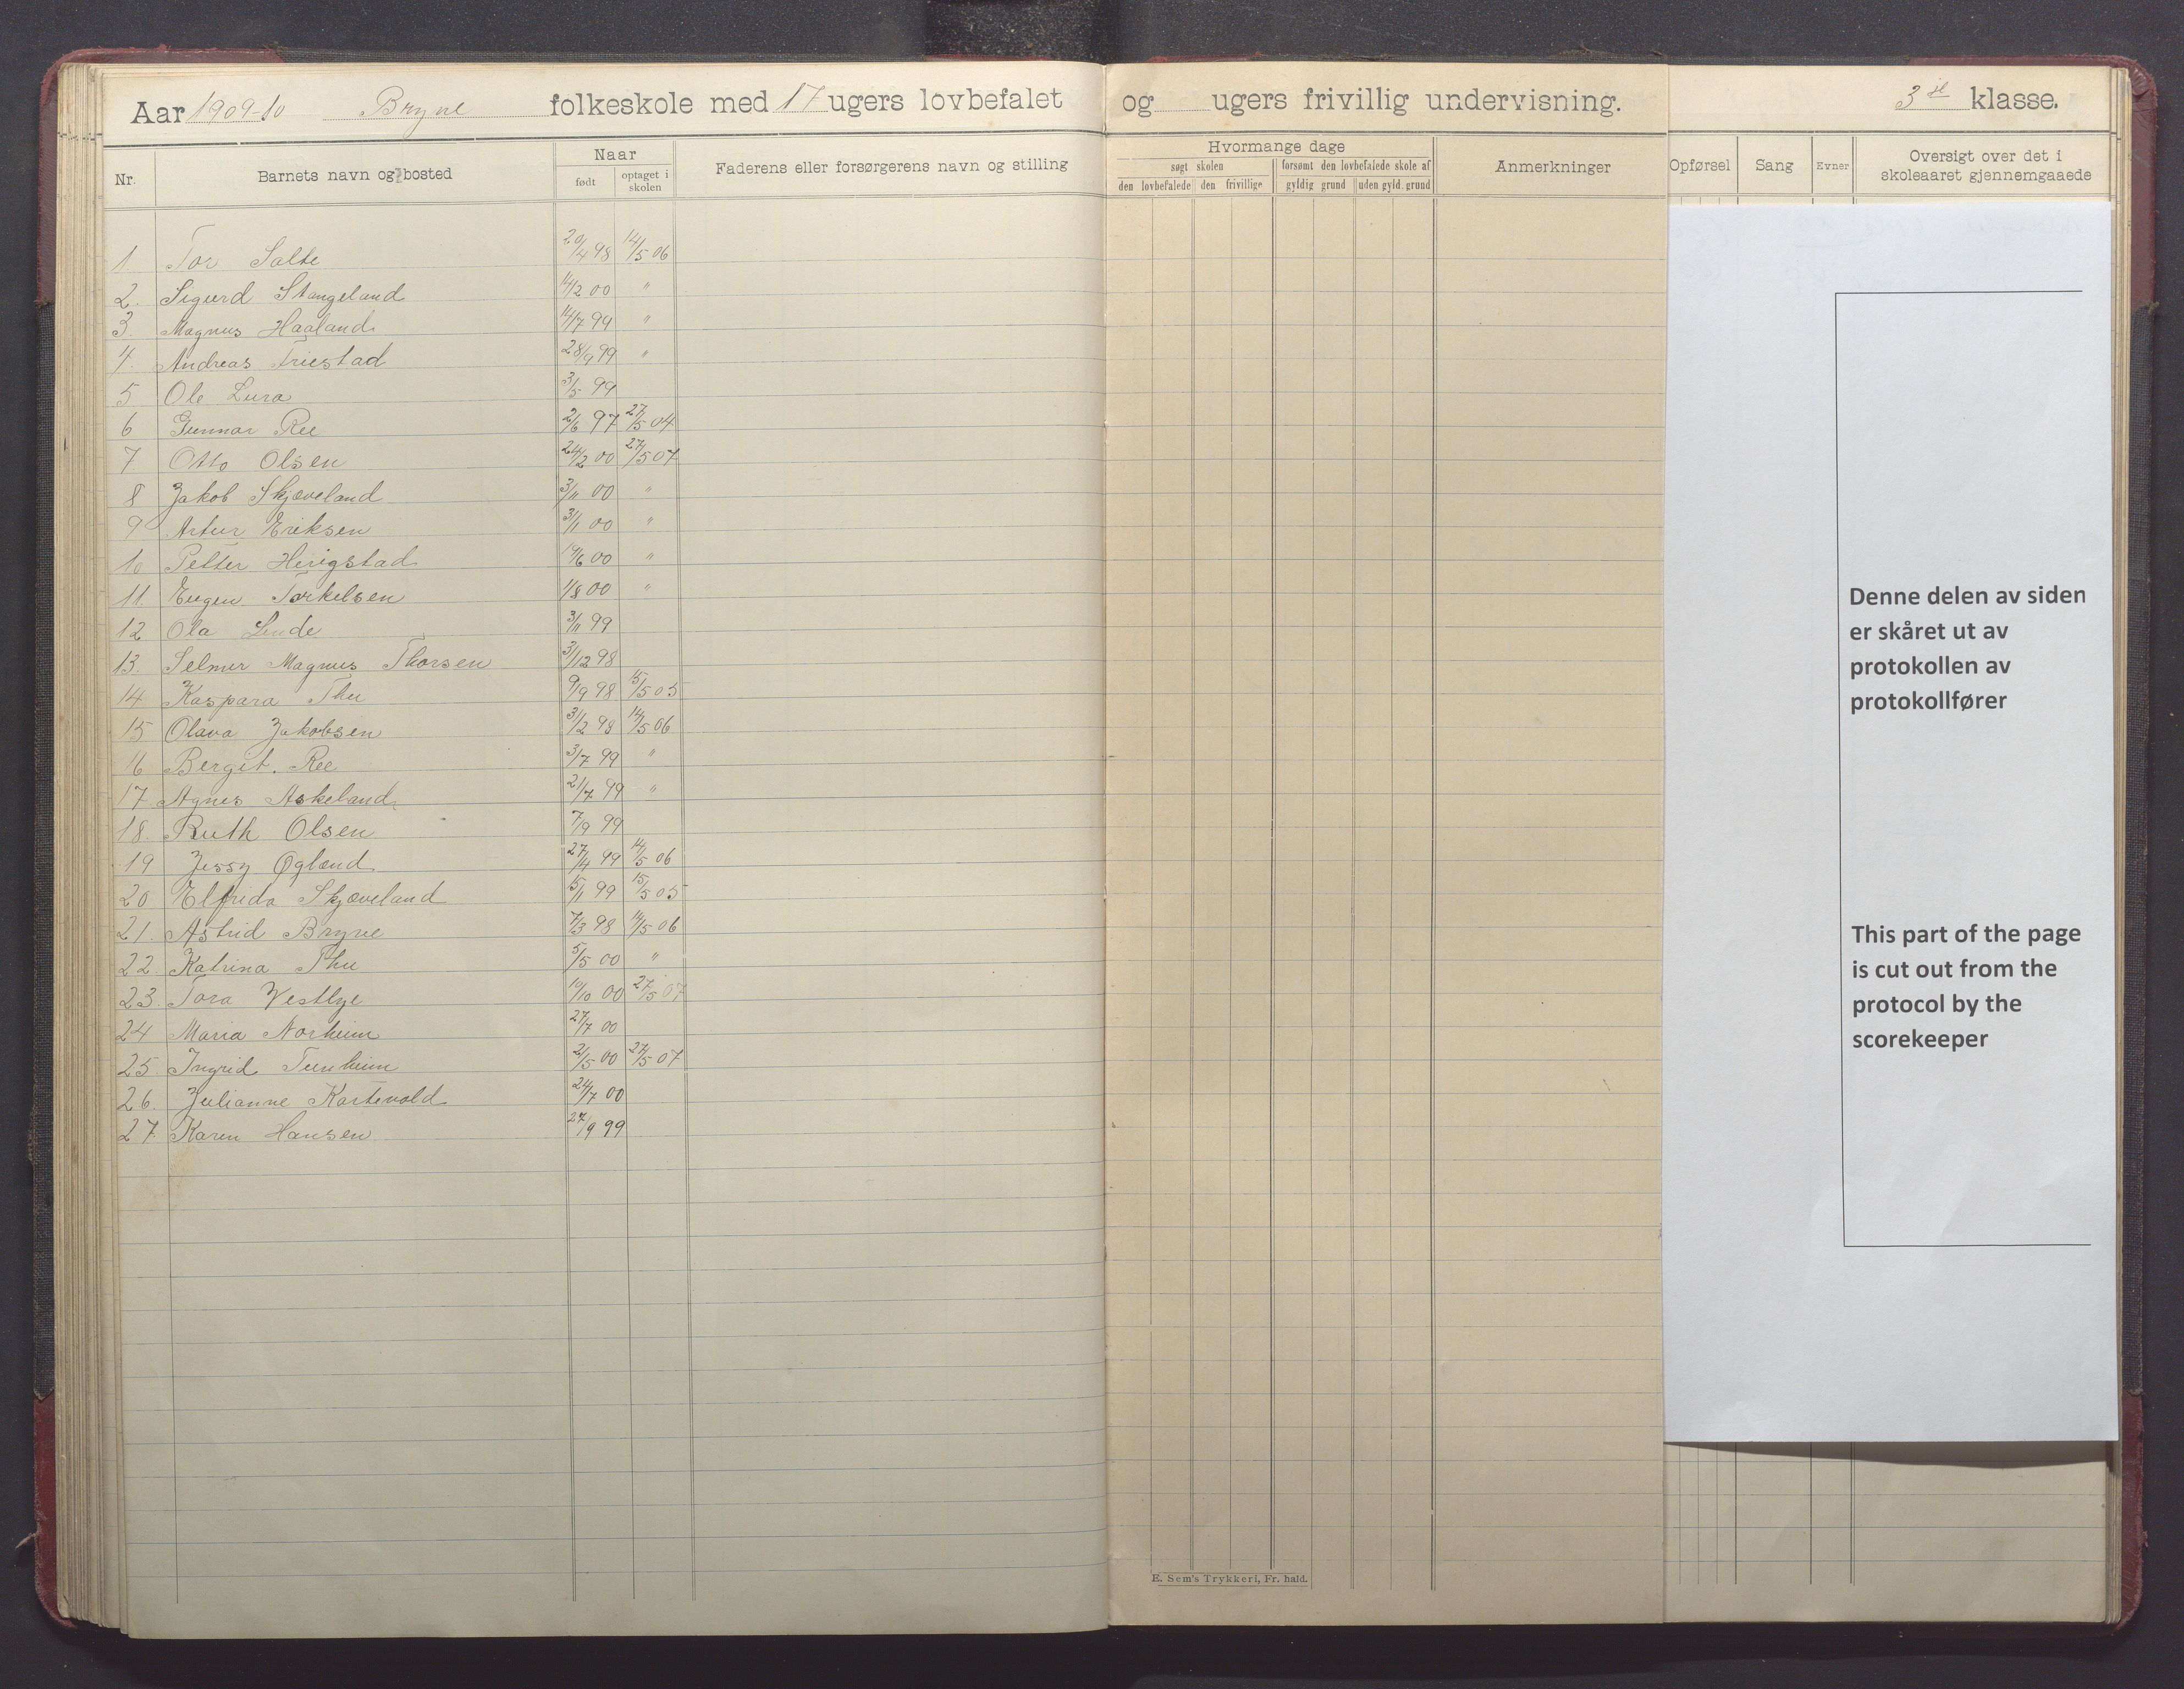 Aar 1909-10 Bryne folkeskole med 17 ugers lovbefalet og ugers frivillig undervisning. 3 klasse.
Nr. Barnets navn og bosted Naar født optaget i skolen Faderens eller forsørgerens navn og stilling Hvormange dage søgt skolen den lovbefalede den frivillige forsømt den lovbefalede skole af gyldig grund uden gyld. grund Anmerkninger Opførsel Sang Evner Oversigt over det i skoleaaret gjennemgaaede
1. Tor Salte 20/4 98 14/5 06
2. Sigurd Stangeland 14/2 00 "
3. Magnus Haaland 14/7 99 "
4. Andreas Friestad 28/9 99 "
5 Ole Lura 3/5 99
6 Gunnar Ree 2/6 97 27/5 04
7. Otto Olsen 24/2 00 27/5 07
8 Jakob Skjæveland 3/11 00 "
9 Artur Eriksen 3/1 00 "
10 Petter Herigstad /6 00 "
11. Eugen Torkelsen 1/8 00 "
12 Ola Lende 3/11 99
13. Selmer Magnus Thorsen 3/12 98
14 Kaspara Thu 9/9 98 15/5 05
15 Olava Jakobsen 3/2 98 14/5 06
16 Bergit. Ree 3/7 99 "
17. Agnes Askeland 21/7 99 "
18. Ruth Olsen 7/9 99
19 Jessy Øgland 27/4 99 14/5 06
20 Elfrida Skjæveland 15/1 99 15/5 05
21. Astrid Bryne 7/3 98 14/5 06
22. Katrina Thu 5/5 00 "
23. Tora Vestlye 10/10 00 27/5 07
24 Maria Norheim 27/7 00
25. Ingrid Tunheim 2/5 00 27/5 07
26. Julianne Kartevold 24/7 00
27. Karen Hansen 27/9 99
E. Sem's Trykkeri, Fr. hald.
Denne delen av siden
er skåret ut av
protokollen av
protokollfører
This part of the page
is cut out from the
protocol by the
scorekeeper